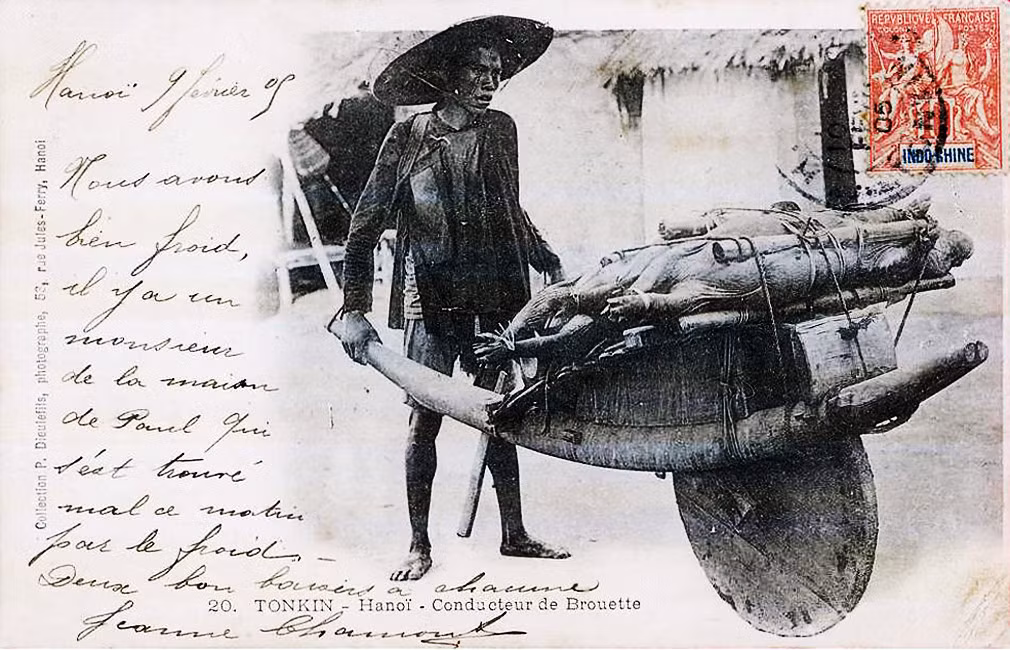 Hanoï 9 février 05
Nous avons
bien froid,
il y a un
monsieur
de la maison
de Paul qui
s'est trouvé
mal ce matin
par le froid.
Deux bon baisers à chacune
Jeanne Chamont
20. TONKIN - Hanoï - Conducteur de Brouette
Collection P. Dieulefils, photographe, 53, rue Jules-Ferry, Hanoi
REPUBLIQUE FRANÇAISE
COLONIES POSTES
INDO-CHINE
05